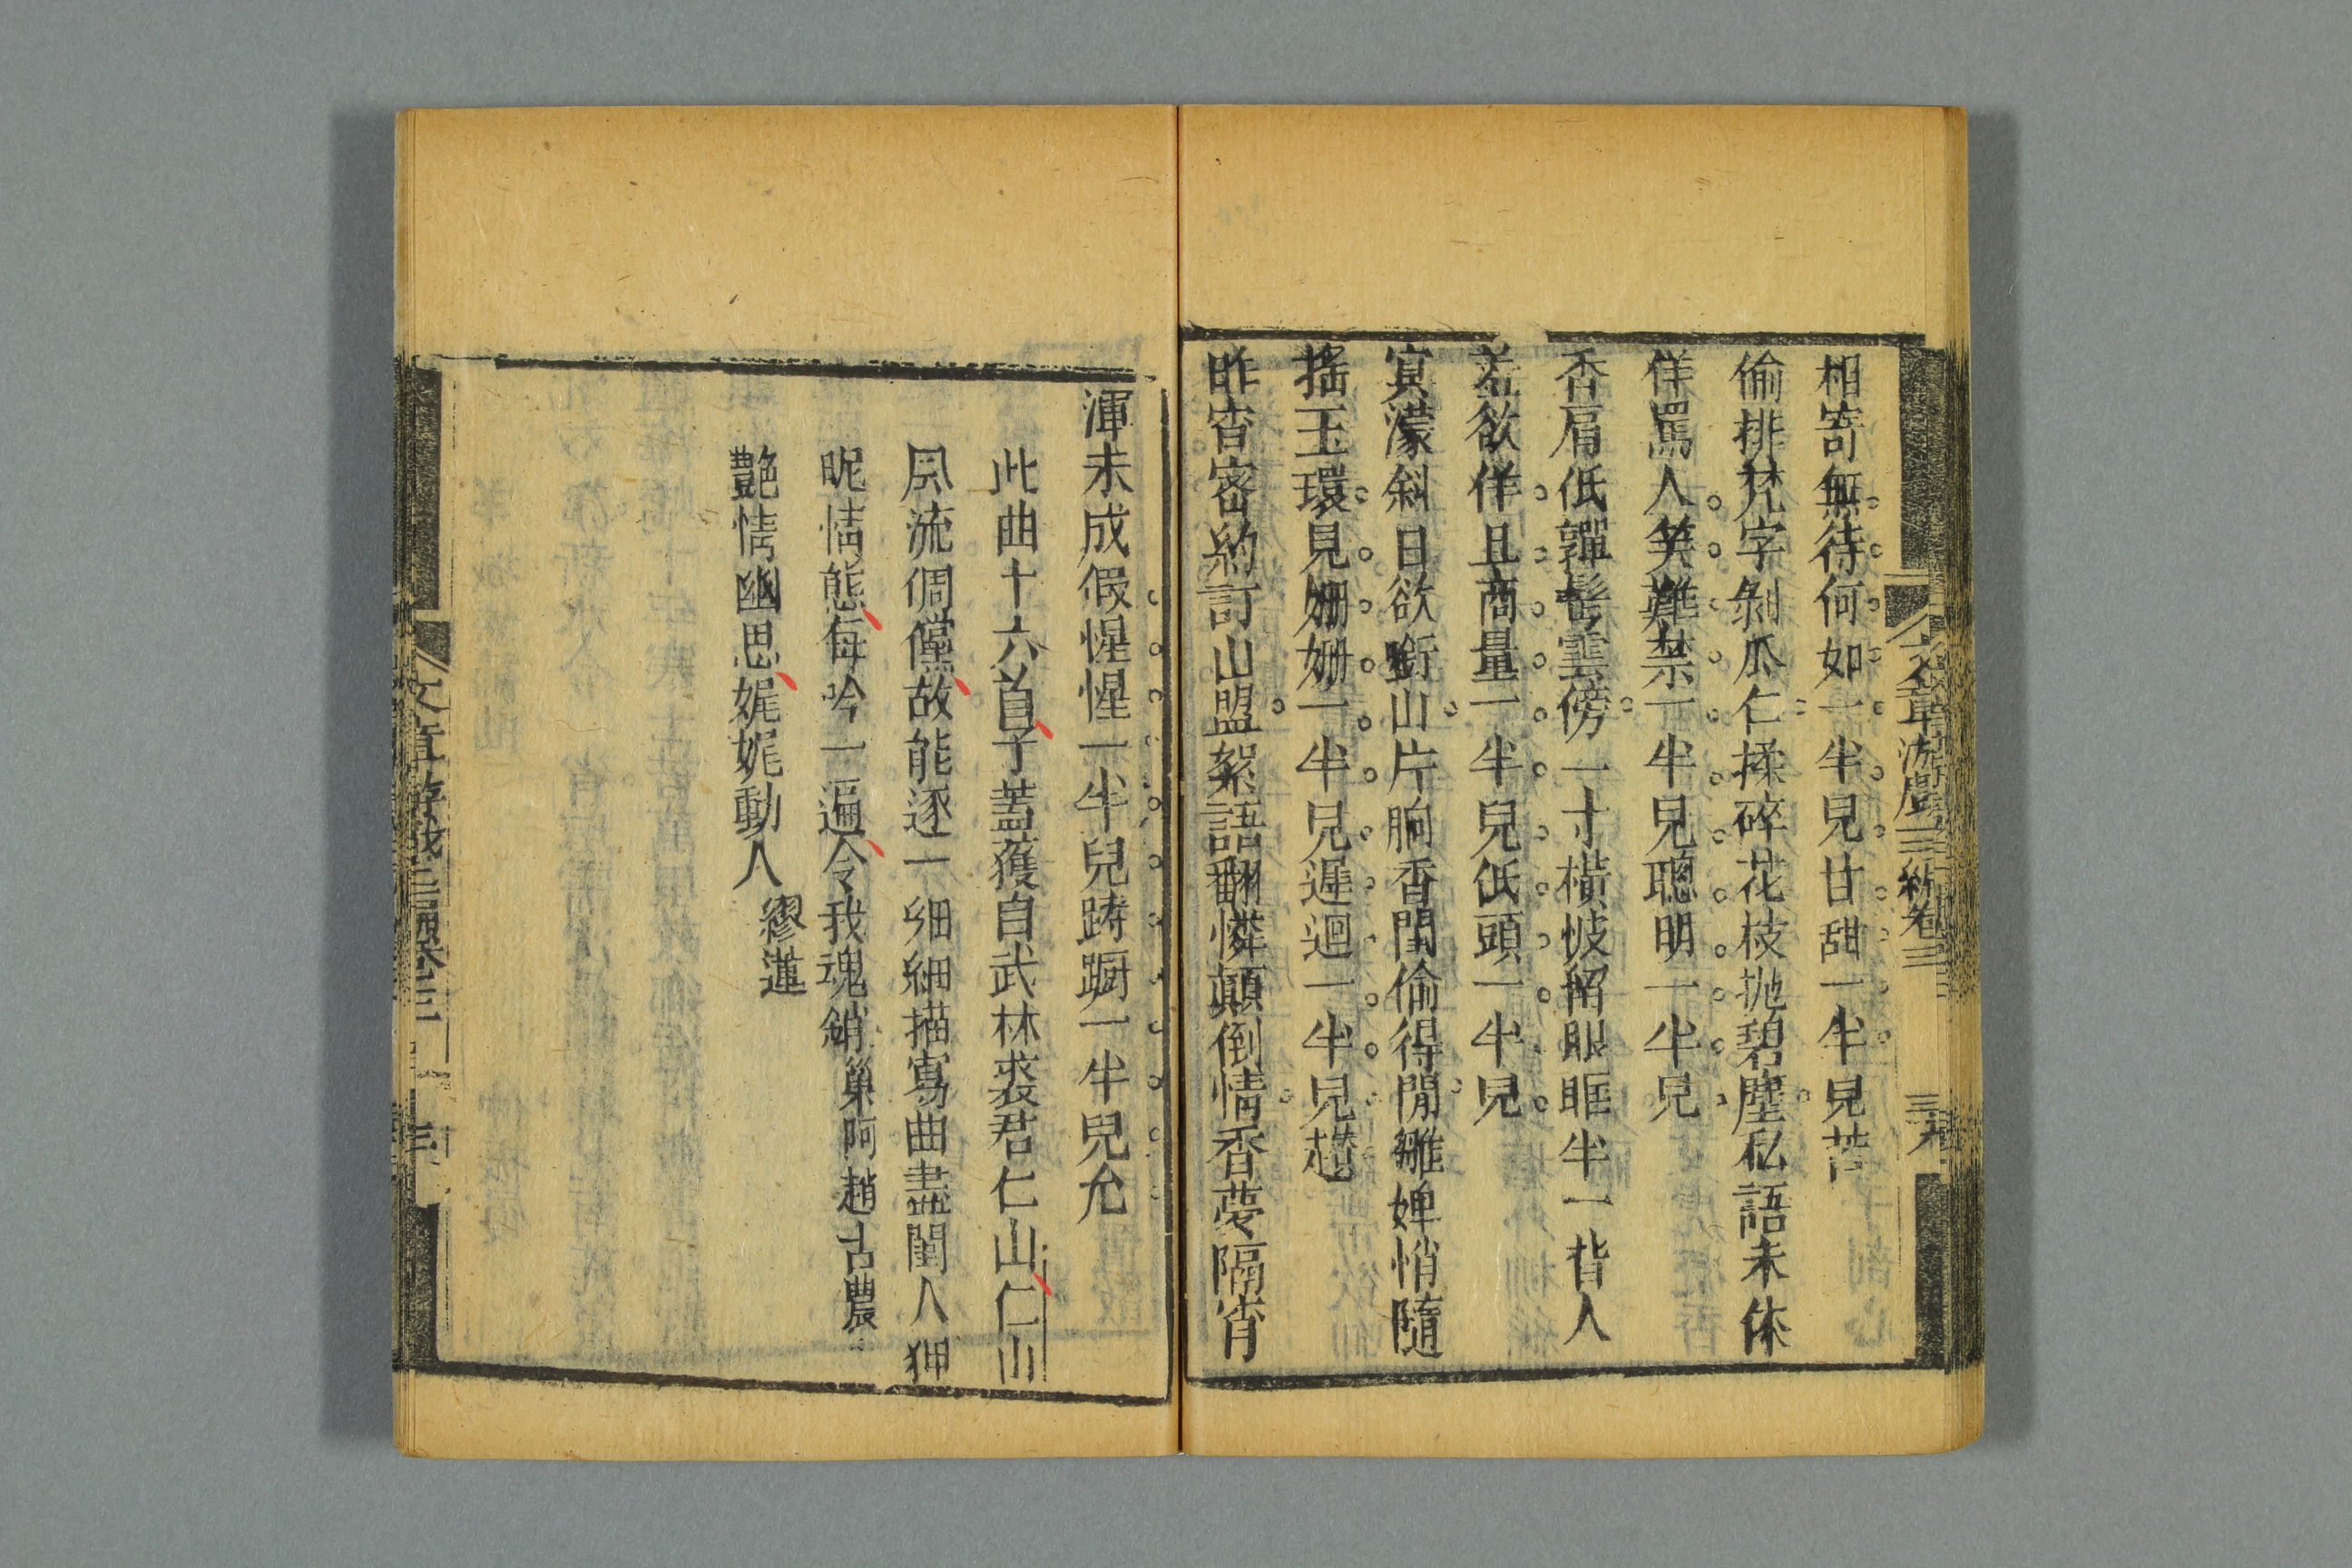 文章游戲三編卷三
三九
相寄無待何如一半兒甘甜一半兒苦
偷排梵字剝瓜仁揉碎花枝拋碧塵私語未休
佯罵人笑難禁一半兒聰明一半兒
香肩低嚲髩雲傍一寸橫波留眼眶半一背人
羞欲佯且商量一半兒低頭一半兒
寘濛斜日欲銜山片晌香閨偷得閒雛婢悄隨
搖玉環見姍姍一半兒遲迴一半兒趲
昨宵密約訂山盟絮語翻憐顛倒情香夢隔宵
渾未成假惺惺一半兒躊躕一半兒允
此曲十六首予蓋獲自武林裘君仁山仁山
風流倜儻故能逐一細細描寫曲盡閨人狎
昵情態每吟一遍令我魂銷巢阿趙古農
豔情幽思娓娓動人繆蓮
文章游戲三編卷三